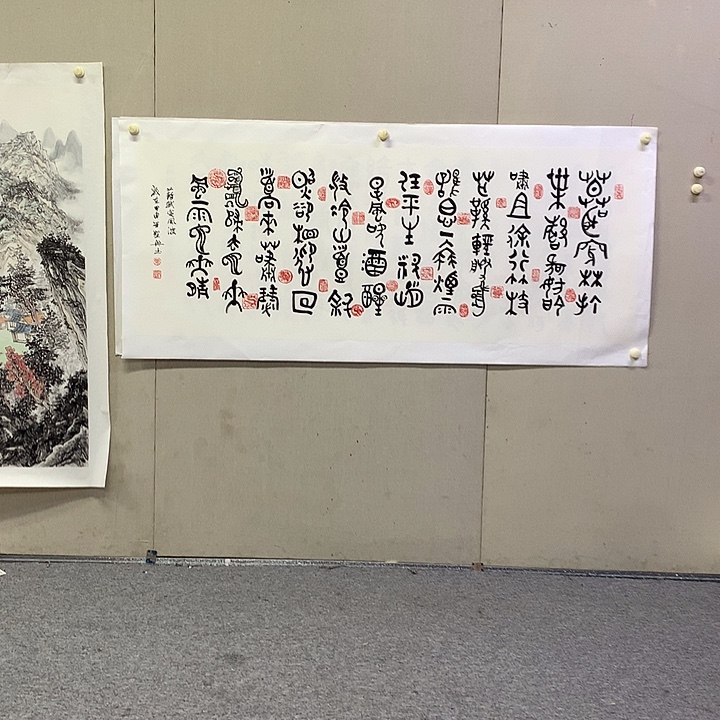 莫聽穿林打
葉聲何妨吟
嘯且徐行竹杖
芒鞋輕勝馬
誰怕一蓑煙雨
任平生料峭
春風吹酒醒
微冷山頭斜
照卻相迎回
首向來蕭瑟
處歸去也無
風雨也無晴
蘇軾定風波